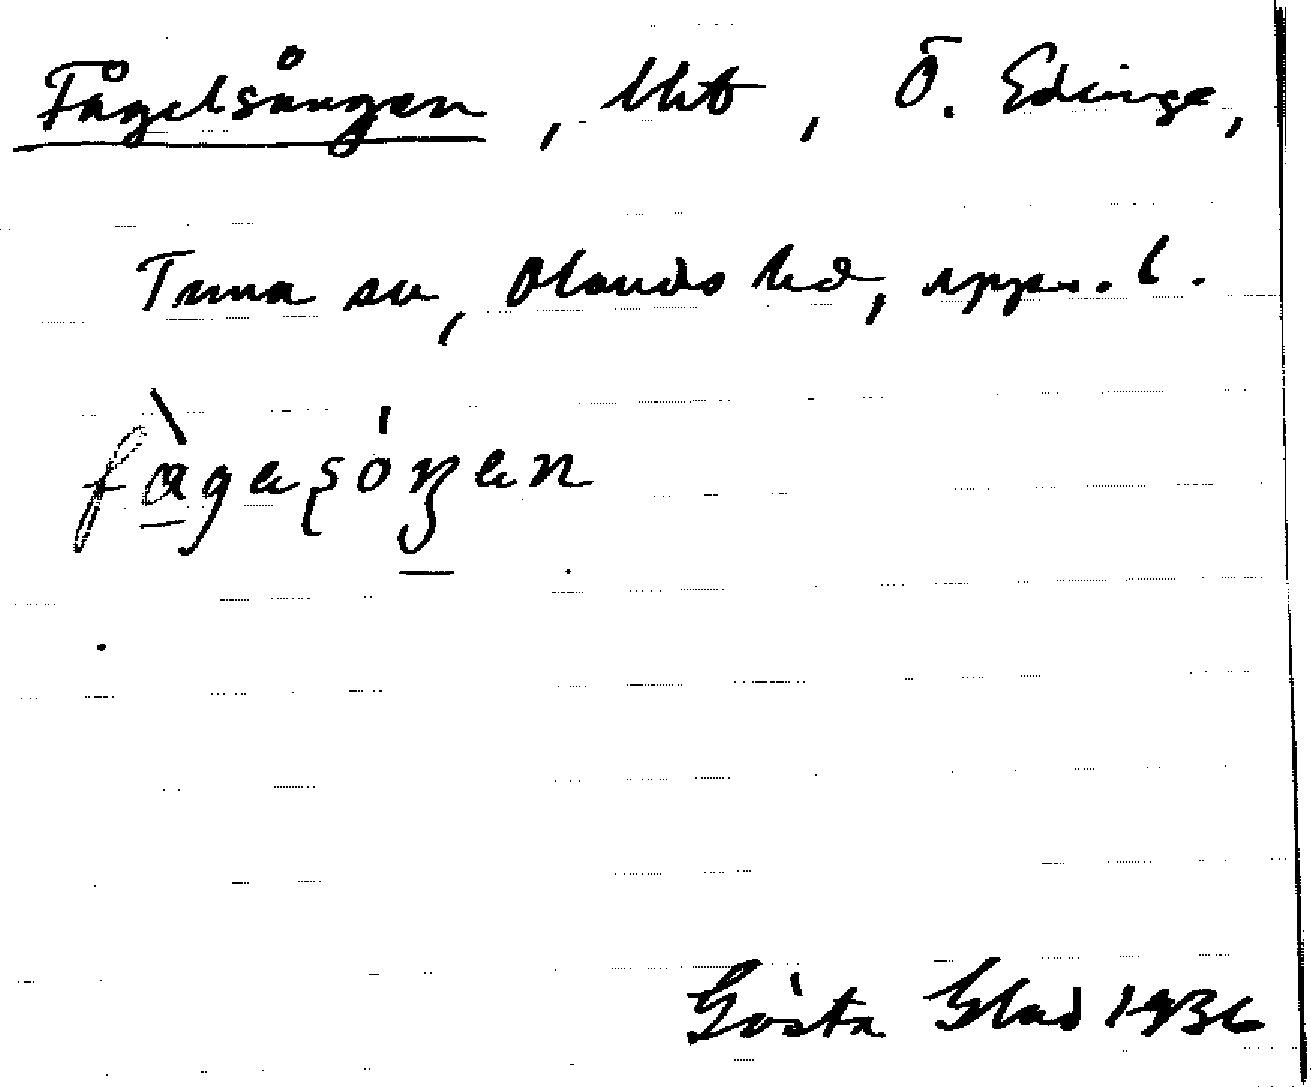 Fågelsången, lht, Ö. Edinge,
Tuna sn, Olands hd, Upps. l.
fàgesóŋen
Gösta Blad 1936